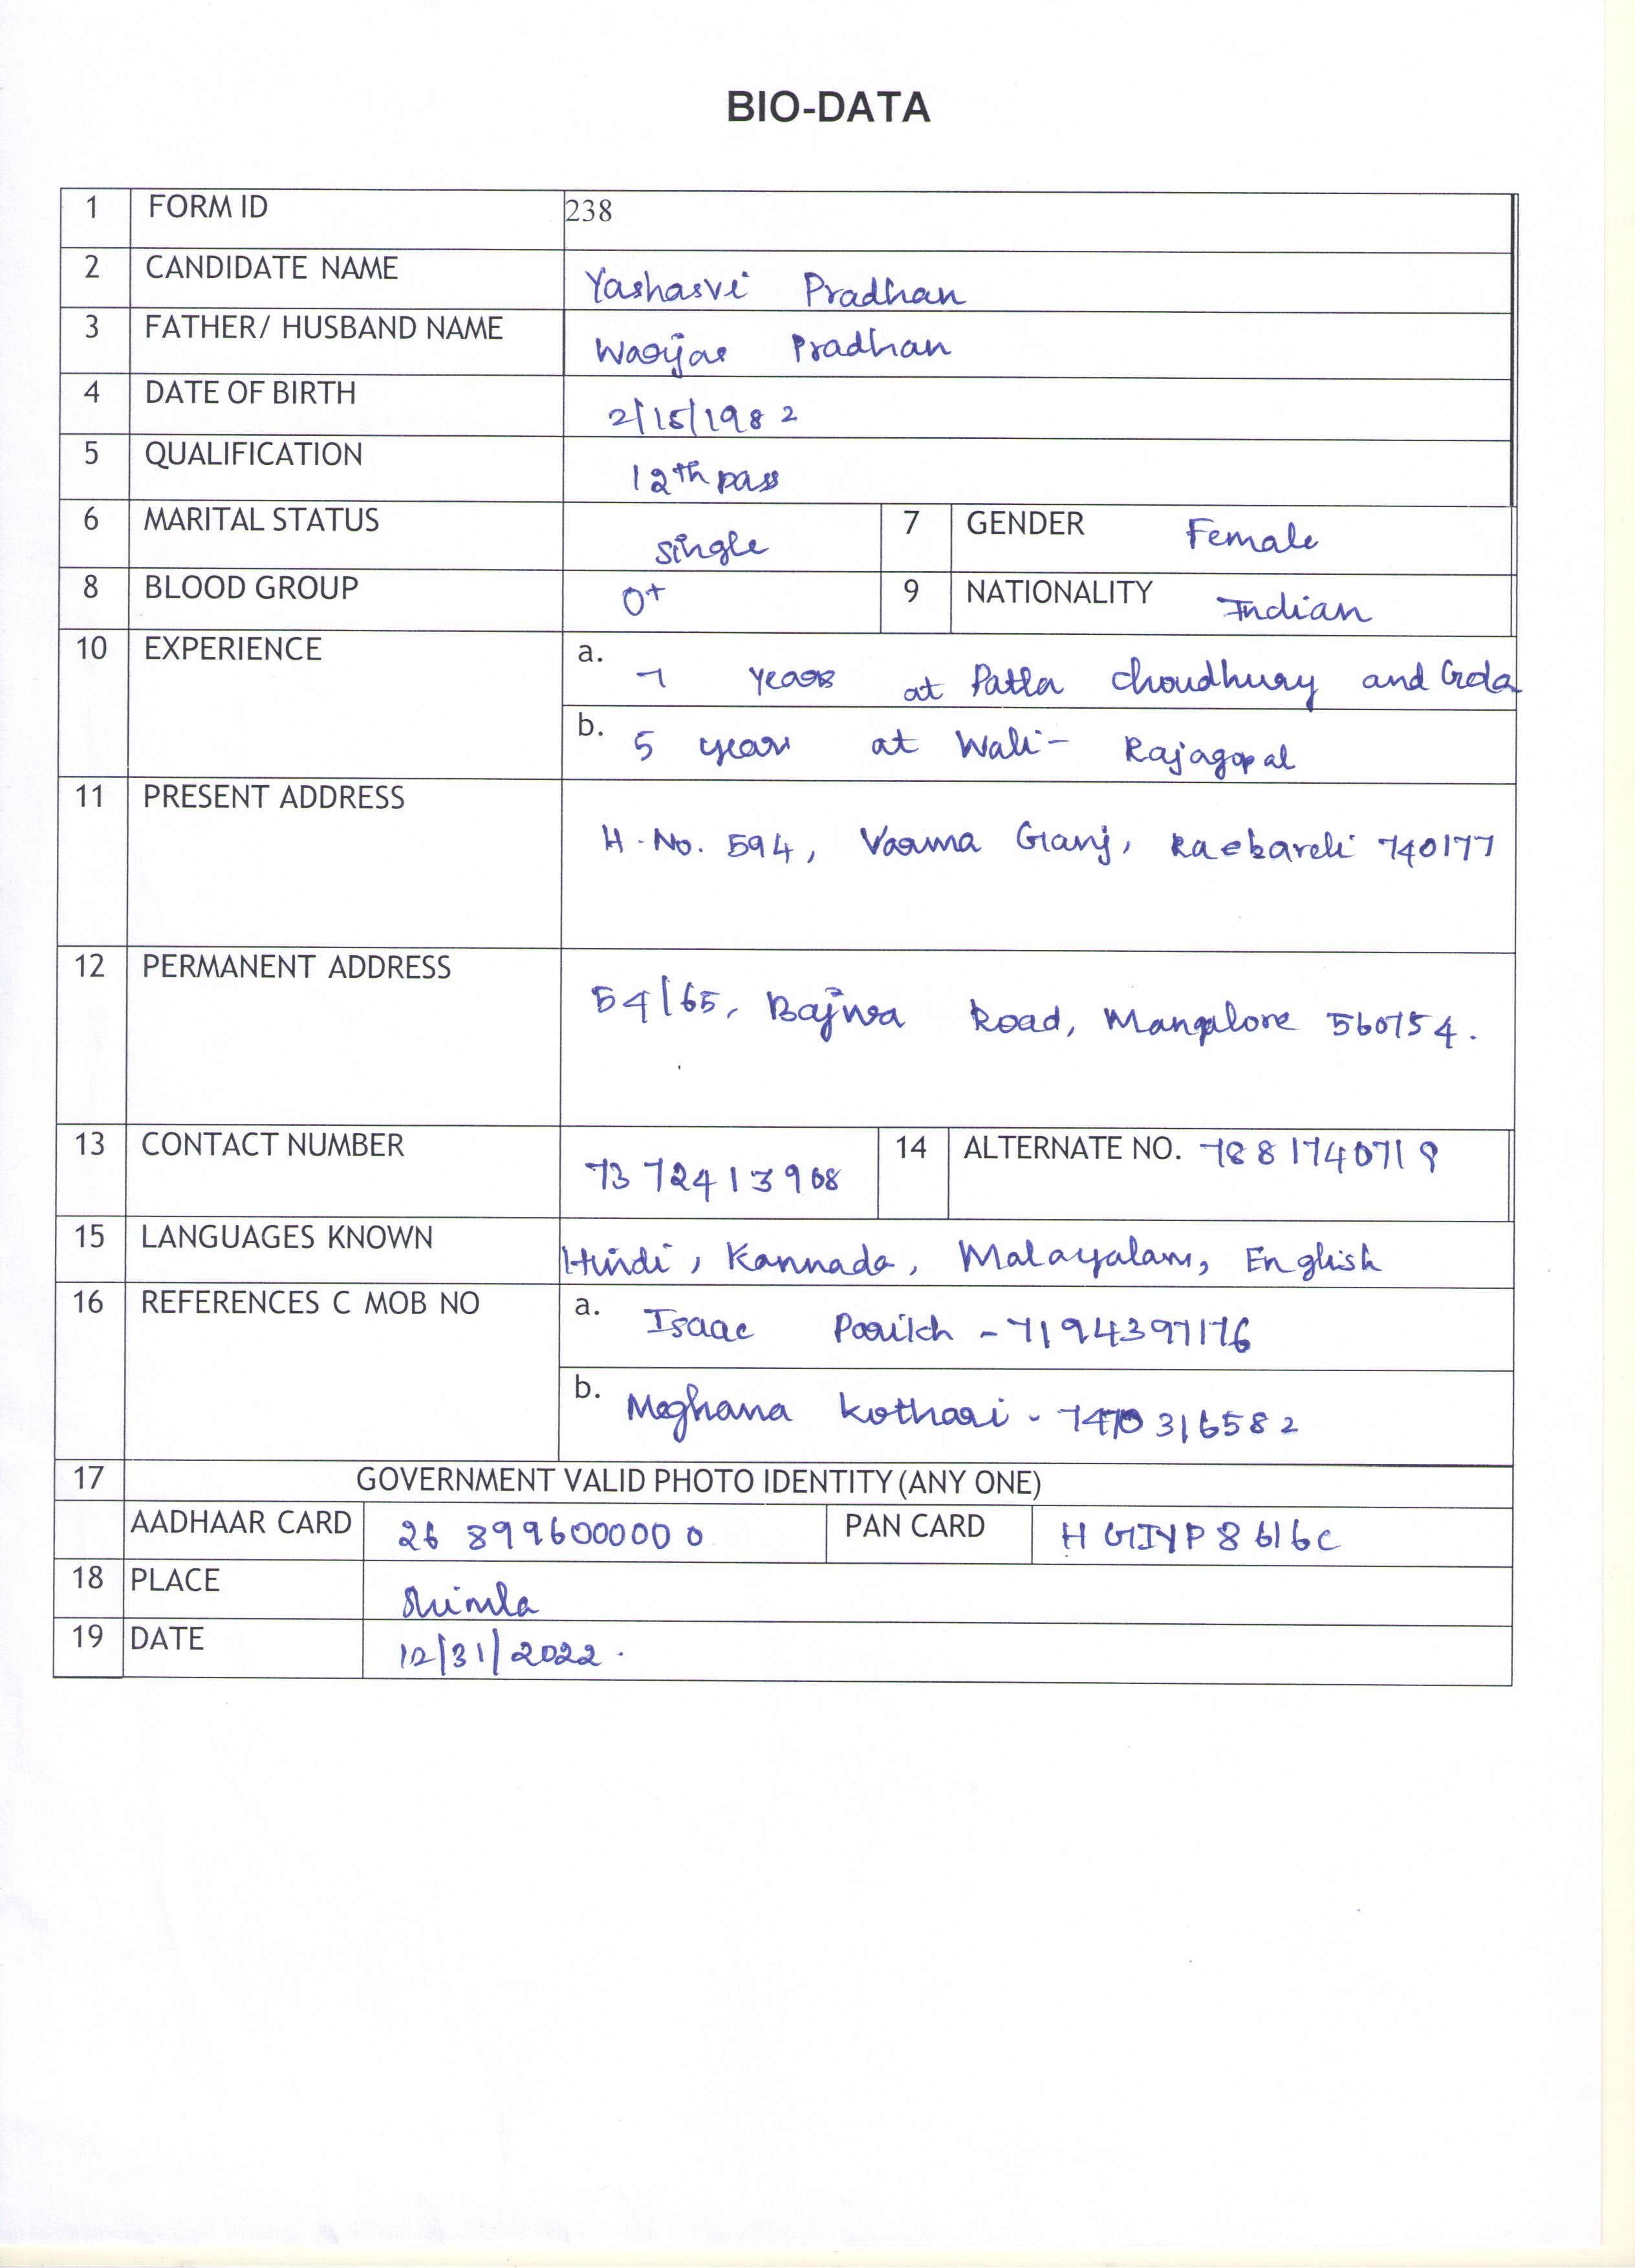 BIO-DATA
1 FORM ID 238
2 CANDIDATE NAME Yashasvi Pradhan
3 FATHER/ HUSBAND NAME Pradhan
4 DATE OF BIRTH 2/15/1982
5 QUALIFICATION 12th pass
6 MARITAL STATUS single 7 GENDER Female
8 BLOOD GROUP O+ 9 NATIONALITY Indian
10 EXPERIENCE a. 7 years at Patla choudhury and
b. 5 years at Wali- Rajagopal
11 PRESENT ADDRESS H.No. 594, Varma Ganj, Raebareli 740177
12 PERMANENT ADDRESS 54/65, Bajwa Road, Mangalore 560754.
13 CONTACT NUMBER 7372413908 14 ALTERNATE NO. 7881740719
15 LANGUAGES KNOWN Hindi, Kannada, Malayalam, English
16 REFERENCES C MOB NO a. Isaac Parikh - 7194397176
b. Meghana Kothari - 7470316582
17 GOVERNMENT VALID PHOTO IDENTITY (ANY ONE)
AADHAAR CARD 26 8996000000 PAN CARD HGIYP8616C
18 PLACE Shimla
19 DATE 12/31/2022.